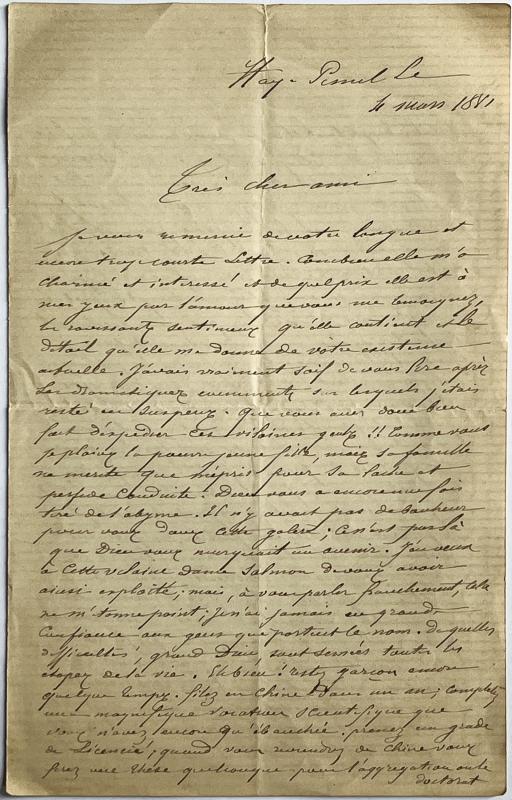 Hay-
4 mars 1881
Très cher ami
Je vous remercie de votre longue et
encore trop courte Lettre. Combien elle m'a
charmé et interessé et de quel prix elle est à
mes yeux par l'amour que vous me temoignez,
les ravissants sentimens qu'elle contient et le
détail qu'elle me donne de votre existence
actuelle. J'avais vraiment soif de vous lire après
les dramatiques evenements sur lesquels j'etais
resté en suspens. Que vous avez donc bien
fait d'expedier ces vilaines gens !! Comme vous
je plains la pauvre jeune fille, mais sa famille
ne merite que mepris pour sa lache et
perfide conduite. Dieu vous a encore une fois
tiré de l'abyme. Il n'y avait pas de bonheur
pour vous dans cette galere ; ce n'est pas là
que Dieu vous marquait un avenir. J'en veux
à cette vilaine Dame Salmon de vous avoir
ainsi exploité ; mais, à vous parler franchement, cela
ne m'etonne point : je n'ai jamais eu grande
confiance aux gens qui portent le nom. De quelles
difficultés, grand Dieu, sont semées toutes les
etapes de la vie. Eh bien ! restez garçon encore
quelque temps. filez en Chine dans un an ; completez
une magnifique vocation scientifique que
vous n'avez encore qu'ébauchée. prenez un grade
de Licencié ; quand vous reviendrez de Chine vous
ferez une these quelconque pour l'aggregation ou le
doctorat